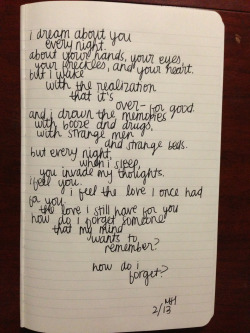 i dream about you
every night.
about your hands, your eyes
your freckles, and your heart.
but i wake
with the realization
that it's
over- for good.
and i drown the memories
with booze and drugs,
with strange men
and strange beds.
but every night,
when i sleep,
you invade my thoughts.
i feel you.
i feel the love i once had
for you.
the love i still have for you
how do i forget someone
that my mind
wants to
remember?
how do i
forget?
MH
2/13